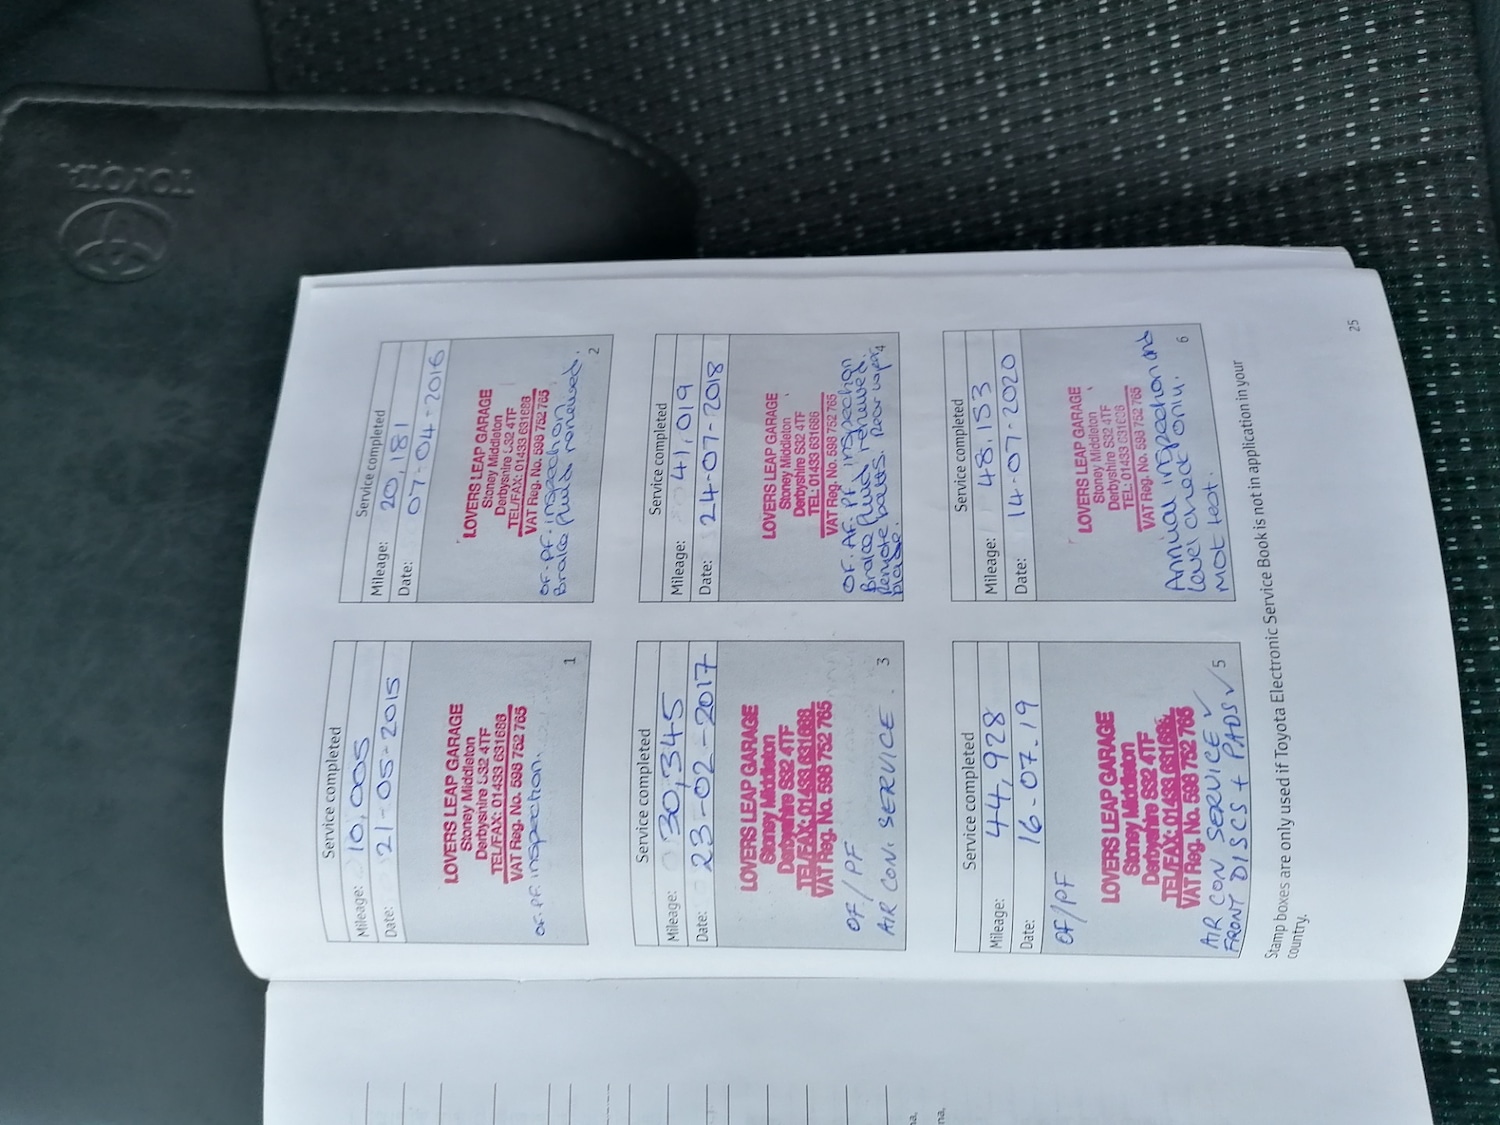 TOYOTA
Service completed
Mileage: 10,005
Date: 21-05-2015
LOVERS LEAP GARAGE
Stoney Middleton
Derbyshire S32 4TF
TEL/FAX: 01433 631686
VAT Reg. No. 598 752 765
OF. PF. inspection.
1
Service completed
Mileage: 20,181
Date: 07-04-2016
LOVERS LEAP GARAGE
Stoney Middleton
Derbyshire S32 4TF
TEL/FAX: 01433 631686
VAT Reg. No. 598 752 765
OF. PF. inspection
Brake fluid renewed.
2
Service completed
Mileage: 30,345
Date: 23-02-2017
LOVERS LEAP GARAGE
Stoney Middleton
Derbyshire S32 4TF
TEL/FAX: 01433 631686
VAT Reg. No. 598 752 765
OF/PF
AIR CON. SERVICE.
3
Service completed
Mileage: 41,019
Date: 24-07-2018
LOVERS LEAP GARAGE
Stoney Middleton
Derbyshire S32 4TF
TEL: 01433 631686
VAT Reg. No. 598 752 765
OF. AF. PF. inspection
Brake fluid renewed.
Remote batts. Rear wiper
blade.
4
Service completed
Mileage: 44,928
Date: 16-07-19
OF/PF
LOVERS LEAP GARAGE
Stoney Middleton
Derbyshire S32 4TF
TEL/FAX: 01433 631686
VAT Reg. No. 598 752 765
AIR CON SERVICE ✓
FRONT DISCS + PADS ✓
5
Service completed
Mileage: 48,153
Date: 14-07-2020
LOVERS LEAP GARAGE
Stoney Middleton
Derbyshire S32 4TF
TEL: 01433 631686
VAT Reg. No. 598 752 765
Annual inspection and
level check only.
Mot test.
6
Stamp boxes are only used if Toyota Electronic Service Book is not in application in your
country.
25